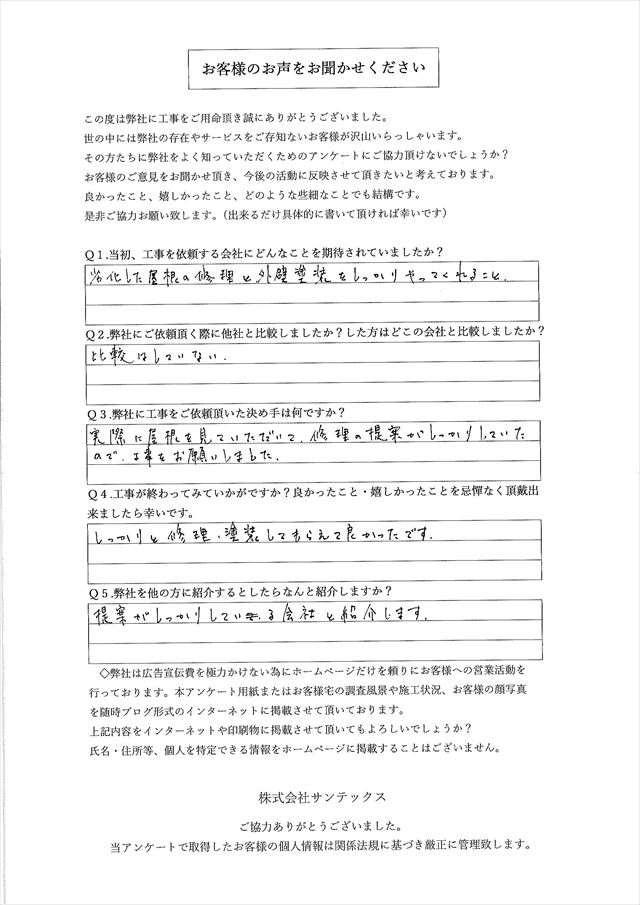 お客様のお声をお聞かせください
この度は弊社に工事をご用命頂き誠にありがとうございました。
世の中には弊社の存在やサービスをご存知ないお客様が沢山いらっしゃいます。
その方たちに弊社をよく知っていただくためのアンケートにご協力頂けないでしょうか？
お客様のご意見をお聞かせ頂き、今後の活動に反映させて頂きたいと考えております。
良かったこと、嬉しかったこと、どのような些細なことでも結構です。
是非ご協力お願い致します。（出来るだけ具体的に書いて頂ければ幸いです）
Q１.当初、工事を依頼する会社にどんなことを期待されていましたか？
劣化した屋根の修理と外壁塗装をしっかりやってくれること。
Q２.弊社にご依頼頂く際に他社と比較しましたか？した方はどこの会社と比較しましたか？
比較はしていない。
Q３.弊社に工事をご依頼頂いた決め手は何ですか？
実際に屋根を見ていただいて、修理の提案がしっかりしていた
ので、工事をお願いしました。
Q４.工事が終わってみていかがですか？良かったこと・嬉しかったことを忌憚なく頂戴出
来ましたら幸いです。
しっかりと修理・塗装してもらえて良かったです。
Q５.弊社を他の方に紹介するとしたらなんと紹介しますか？
提案がしっかりしている会社と紹介します。
◇弊社は広告宣伝費を極力かけない為にホームページだけを頼りにお客様への営業活動を
行っております。本アンケート用紙またはお客様宅の調査風景や施工状況、お客様の顔写真
を随時ブログ形式のインターネットに掲載させて頂いております。
上記内容をインターネットや印刷物に掲載させて頂いてもよろしいでしょうか？
氏名・住所等、個人を特定できる情報をホームページに掲載することはございません。
株式会社サンテックス
ご協力ありがとうございました。
当アンケートで取得したお客様の個人情報は関係法規に基づき厳正に管理致します。